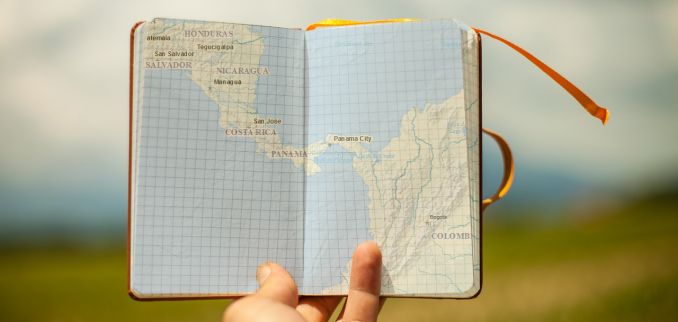 HONDURAS
atemala
Tegucigalpa
San Salvador
SALVADOR
NICARAGUA
Managua
San Jose
COSTA RICA
PANAMA
Panama City
Bogota
COLOMB